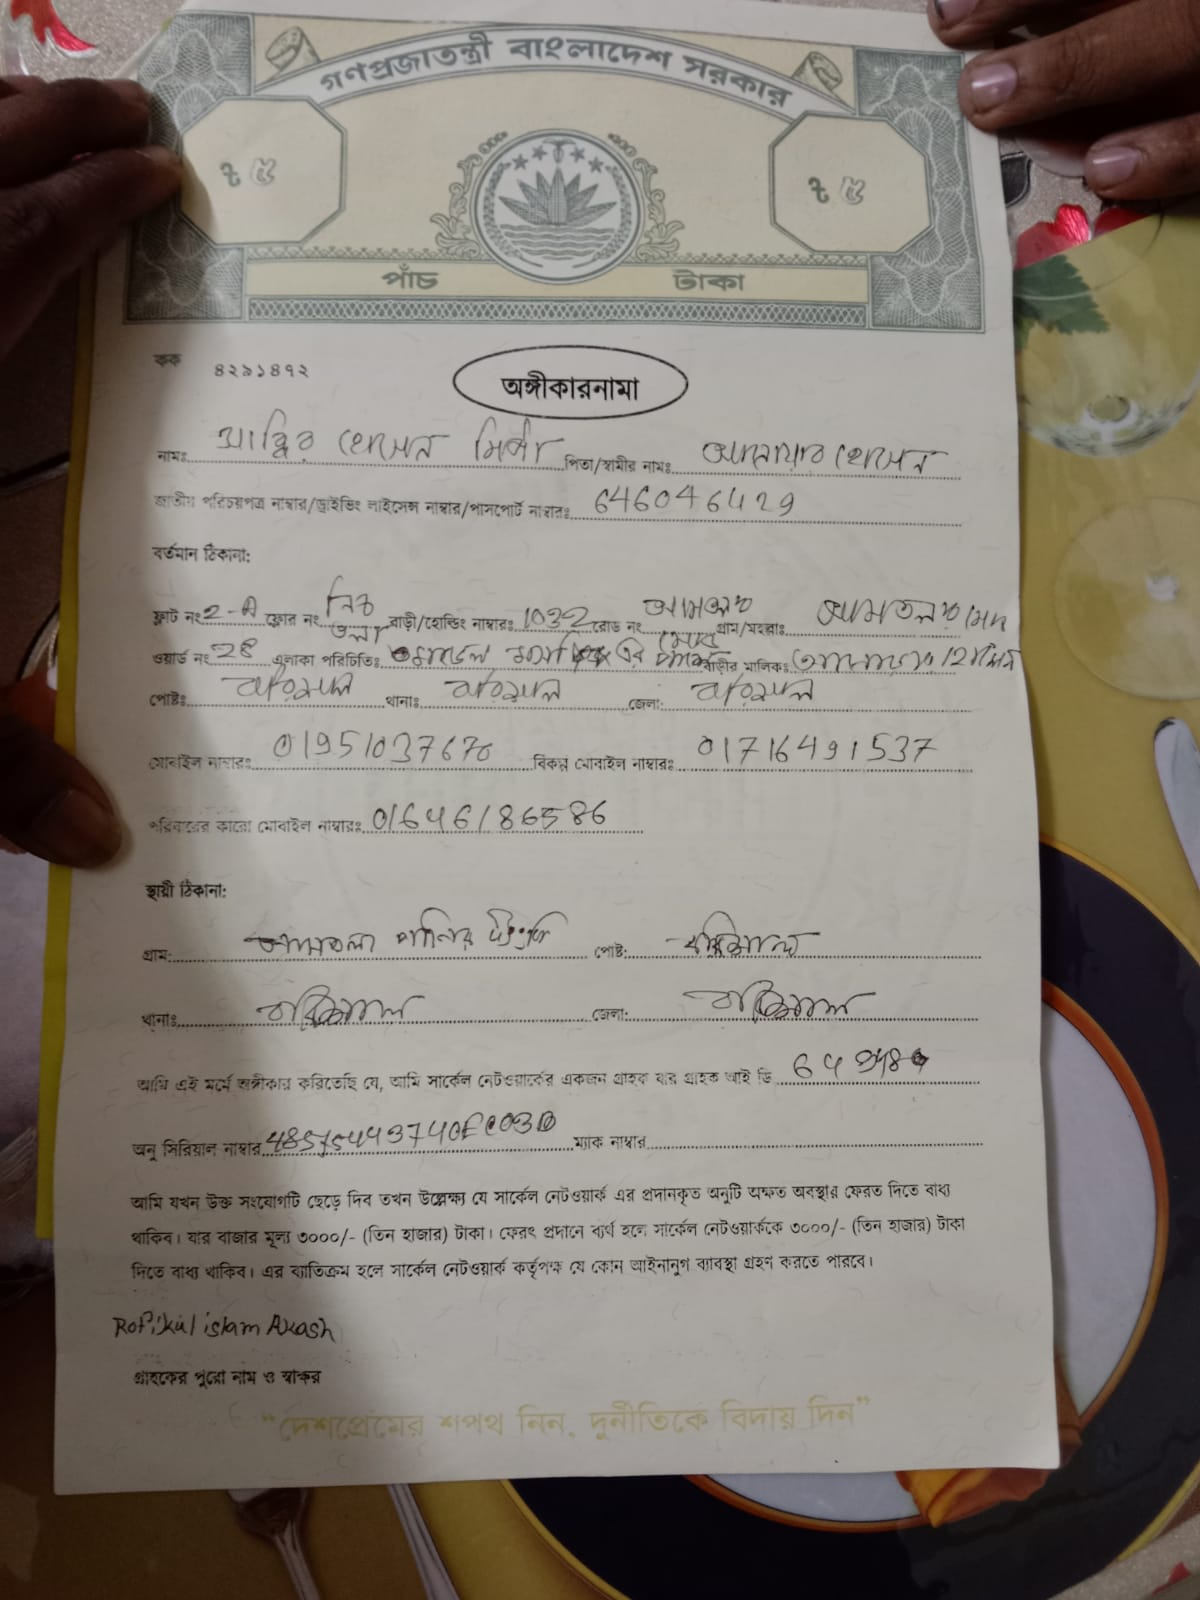 গণপ্রজাতন্ত্রী বাংলাদেশ সরকার
৳ ৫ ৳ ৫
পাঁচ টাকা
কক ৪২৯১৪৭২
অঙ্গীকারনামা
নামঃ হোসেন পিতা/স্বামীর নামঃ আনোয়ার হোসেন
জাতীয় পরিচয়পত্র নাম্বার/ড্রাইভিং লাইসেন্স নাম্বার/পাসপোর্ট নাম্বারঃ 646046429
বর্তমান ঠিকানা:
ফ্লাট নং 2-A ফ্লোর নং নিচ তলা বাড়ী/হোল্ডিং নাম্বারঃ 1032 রোড নং গ্রাম/মহল্লাঃ
ওয়ার্ড নং এলাকা পরিচিতিঃ এর বাড়ীর মালিকঃ
পোষ্টঃ বরিশাল থানাঃ বরিশাল জেলা: বরিশাল
মোবাইল নাম্বারঃ 01951037670 বিকল্প মোবাইল নাম্বারঃ 01716491537
পরিবারের কারো মোবাইল নাম্বারঃ 01646186586
স্থায়ী ঠিকানা:
গ্রাম: আমতলা পানির পোষ্ট: বরিশাল
থানাঃ বরিশাল জেলা: বরিশাল
আমি এই মর্মে অঙ্গীকার করিতেছি যে, আমি সার্কেল নেটওয়ার্কের একজন গ্রাহক যার গ্রাহক আই ডি
অনু সিরিয়াল নাম্বার ম্যাক নাম্বার
আমি যখন উক্ত সংযোগটি ছেড়ে দিব তখন উল্লেক্ষ্য যে সার্কেল নেটওয়ার্ক এর প্রদানকৃত অনুটি অক্ষত অবস্থার ফেরত দিতে বাধ্য
থাকিব। যার বাজার মূল্য ৩০০০/- (তিন হাজার) টাকা। ফেরৎ প্রদানে ব্যর্থ হলে সার্কেল নেটওয়ার্ককে ৩০০০/- (তিন হাজার) টাকা
দিতে বাধ্য থাকিব। এর ব্যতিক্রম হলে সার্কেল নেটওয়ার্ক কর্তৃপক্ষ যে কোন আইনানুগ ব্যাবস্থা গ্রহণ করতে পারবে।
Rofikul islam Akash
গ্রাহকের পুরো নাম ও স্বাক্ষর
"দেশপ্রেমের শপথ নিন, দুর্নীতিকে বিদায় দিন"